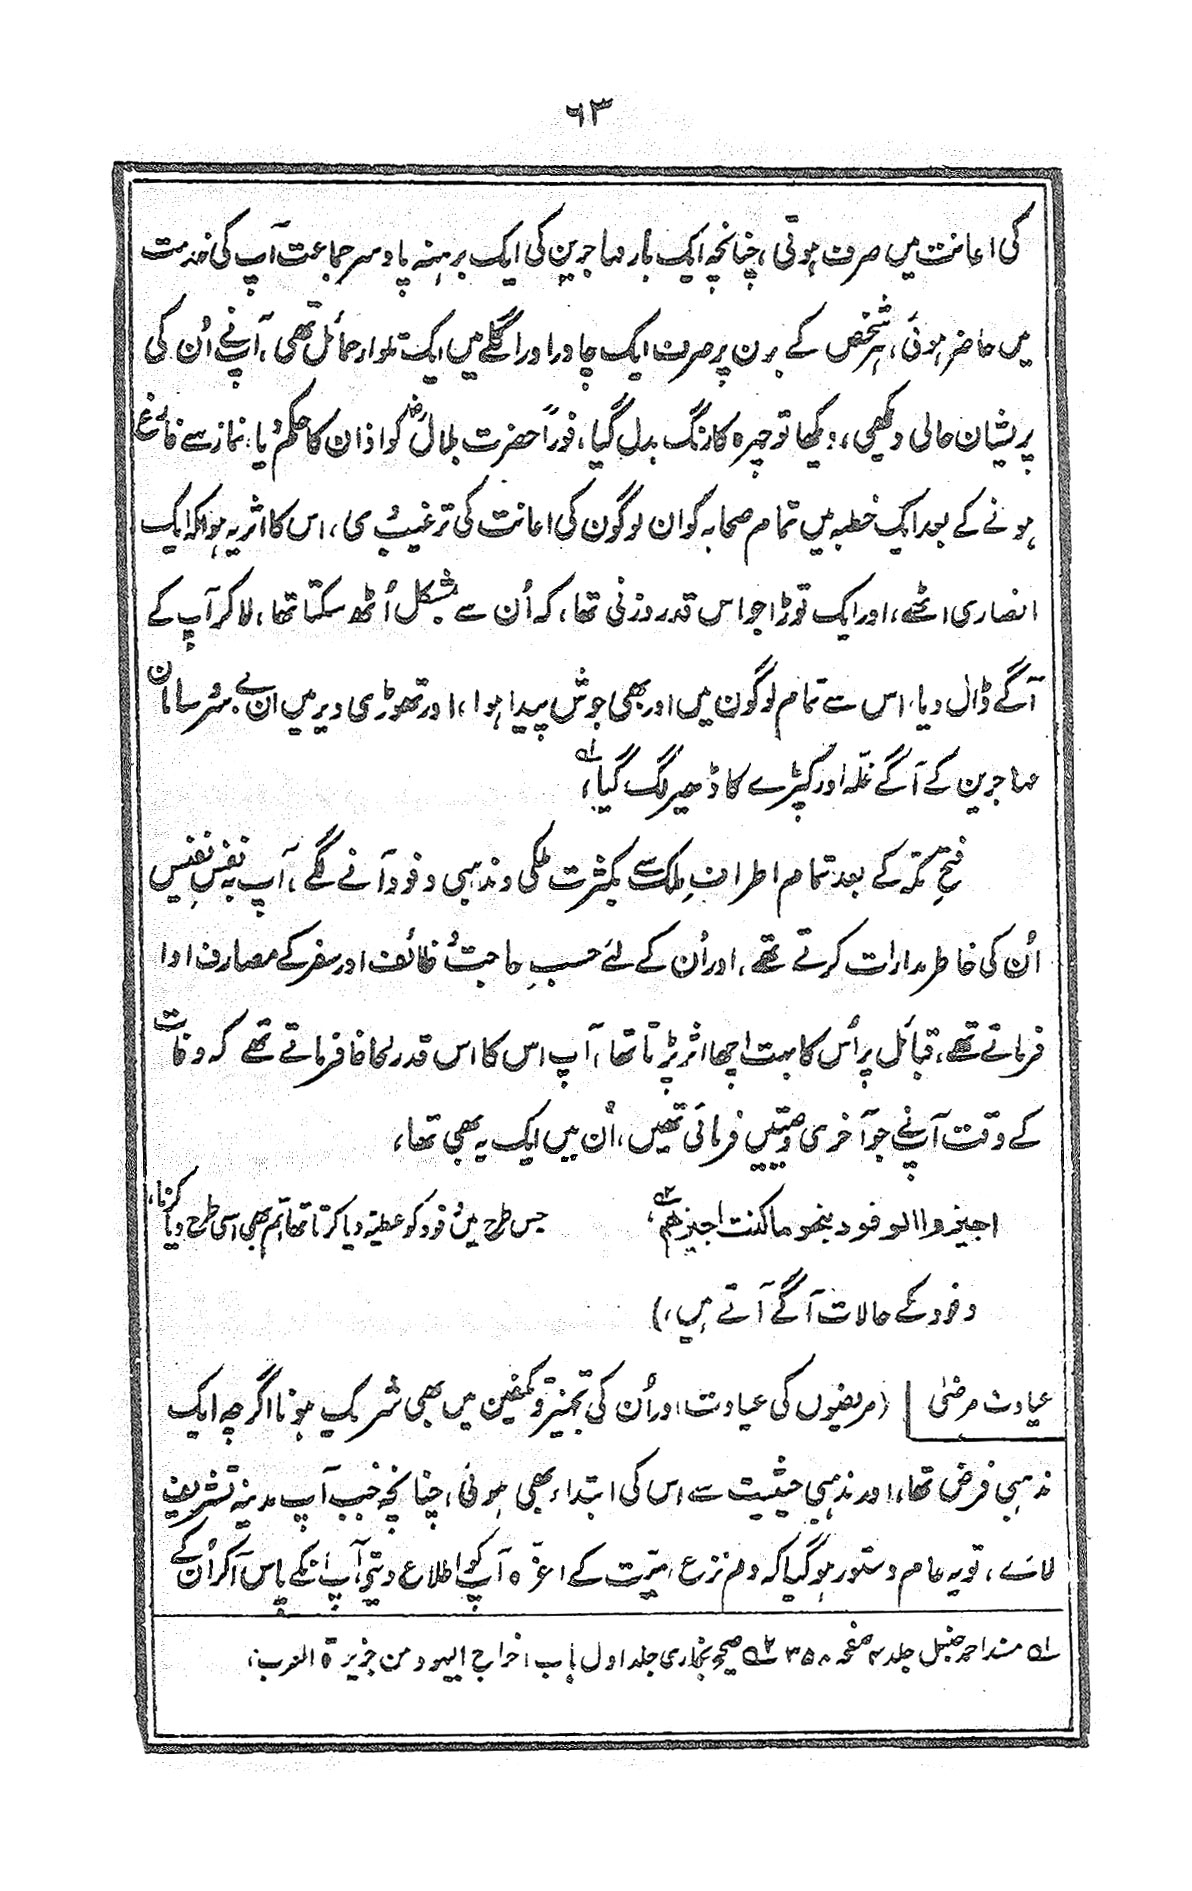 ۶۳
کی اعانت میں صرف ہوتی، چنانچہ ایک بار مہاجرین کی ایک برہنہ پا و سر جماعت آپ کی خدمت
میں حاضر ہوئی، ہر شخص کے بدن پر صرف ایک چادر اور گلے میں ایک تلوار حمائل تھی، آپنے اُن کی
پریشان حالی دیکھی، دیکھا تو چہرہ کا رنگ بدل گیا، فوراً حضرت بلالؓ کو اذان کا حکم دیا، نماز سے فارغ
ہونے کے بعد ایک خطبہ میں تمام صحابہ کو ان لوگون کی اعانت کی ترغیب دی، اس کا اثر یہ ہوا کہ ایک
انصاری اٹھے، اور ایک توڑا جو اس قدر وزنی تھا، کہ اُن سے بمشکل اُٹھ سکتا تھا، لا کر آپ کے
آگے ڈال دیا، اس سے تمام لوگون میں اور بھی جوش پیدا ہوا، اور تھوڑی دیر میں ان بے سرو سامان
مہاجرین کے آگے غلہ اور کپڑے کا ڈھیر لگ گیا،لہ
فتح مکہ کے بعد تمام اطرافِ ملک سے بکثرت ملکی و مذہبی وفود آنے لگے، آپ بہ نفسِ نفیس
اُن کی خاطر مدارات کرتے تھے، اور اُن کے لئے حسبِ حاجت وظائف اور سفر کے مصارف ادا
فرماتے تھے، قبائل پر اُس کا بہت اچھا اثر پڑتا تھا، آپ اس کا اس قدر لحاظ فرماتے تھے کہ وفات
کے وقت آپنے جو آخری وصیتیں فرمائی تھیں، اُن میں ایک یہ بھی تھا،
اجیزوا الوفود بنحو ما کنت اجیزھم،۲ جس طرح میں وفود کو عطیہ دیا کرتا تھا تم بھی اسی طرح دیا کرنا،
وفود کے حالات آگے آتے ہیں،)
عیادت مرضیٰ (مریضوں کی عیادت، اور اُن کی تجہیز و تکفین میں بھی شریک ہونا اگرچہ ایک
مذہبی فرض تھا، اور مذہبی حیثیت سے اس کی ابتداء بھی ہوئی، چنانچہ جب آپ مدینہ تشریف
لائے، تو یہ عام دستور ہو گیا کہ دمِ نزع میت کے اعزہ آپ کو اطلاع دیتے آپ انکے پاس آ کر اُن کے
لہ مسند احمد حنبل جلد ۴ صفحہ ۳۵۸ ۲ صحیح بخاری جلد اول باب اخراج الیہود من جزیرۃ العرب،